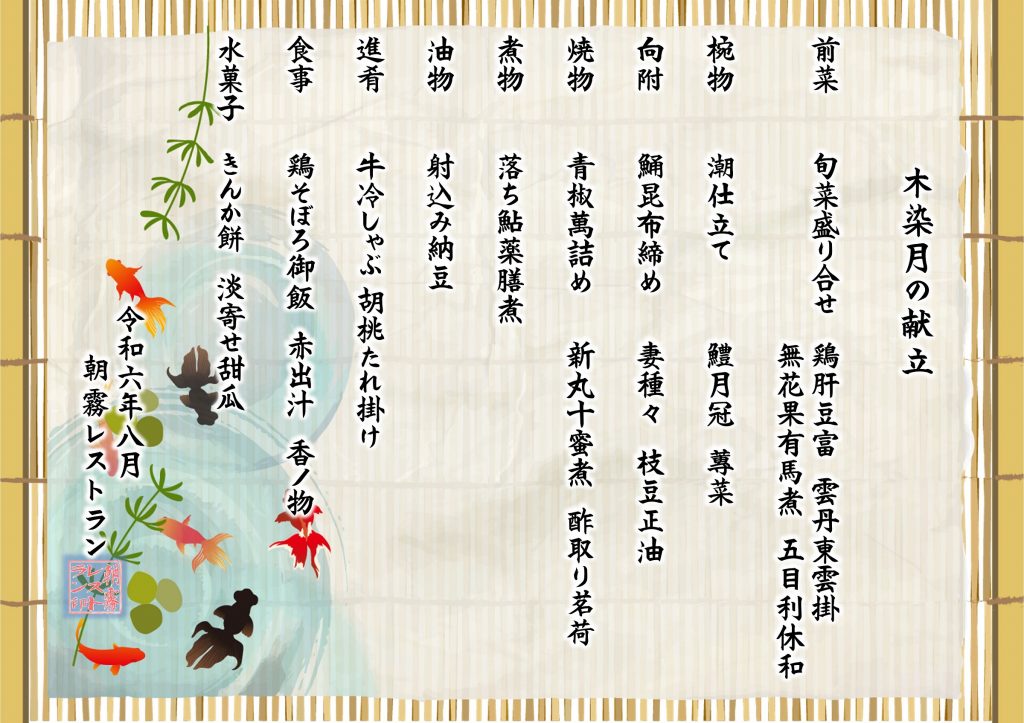 木染月の献立
前菜 旬菜盛り合せ 鶏肝豆富 雲丹東雲掛
無花果有馬煮 五目利休和
椀物 潮仕立て 鱧月冠 蓴菜
向附 鯒昆布締め 妻種々 枝豆正油
焼物 青椒萬詰め 新丸十蜜煮 酢取り茗荷
煮物 落ち鮎薬膳煮
油物 射込み納豆
進肴 牛冷しゃぶ 胡桃たれ掛け
食事 鶏そぼろ御飯 赤出汁 香ノ物
水菓子 きんか餅 淡寄せ甜瓜
令和六年八月
朝霧レストラン
朝霧
レスト
ラン印